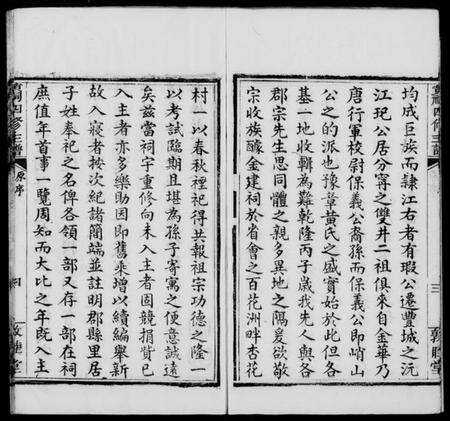 均成巨族而隸江右者有瑕公遷豐城之沅
江玘公居分寧之雙井二祖俱來自金華乃
唐行軍校尉保義公裔孫而保義公即峭山
公之的派也豫章黃氏之盛實始於此但各
基一地收輯為難乾隆丙子歲我先人與各
郡宗先生思同體之親多異地之隔爰欲敬
宗收族醵金建祠於省會之百花洲畔杏花
三
敦睦堂
村一以春秋禋祀得共報祖宗功德之隆一
以考試臨期且堪為孫子寄寓之便意誠遠
矣茲當祠宇重修向未入主者固競捐貲已
入主者亦多樂助因即舊乘增以續編舉新
故入寢者按次紀諸簡端並註明郡縣里居
子姓奉祀之名俾各領一部又存一部在祠
庶值年首事一覽周知而大比之年既入主
四修主譜
原序
四
敦睦堂